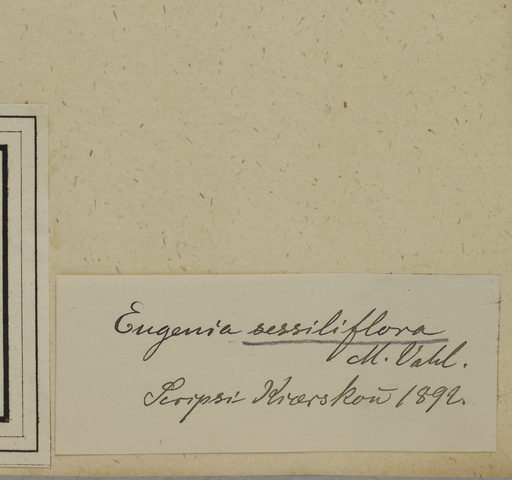 Eugenia sessiliflora
M. Vahl.
Scripsi Kiærskoū 1892.